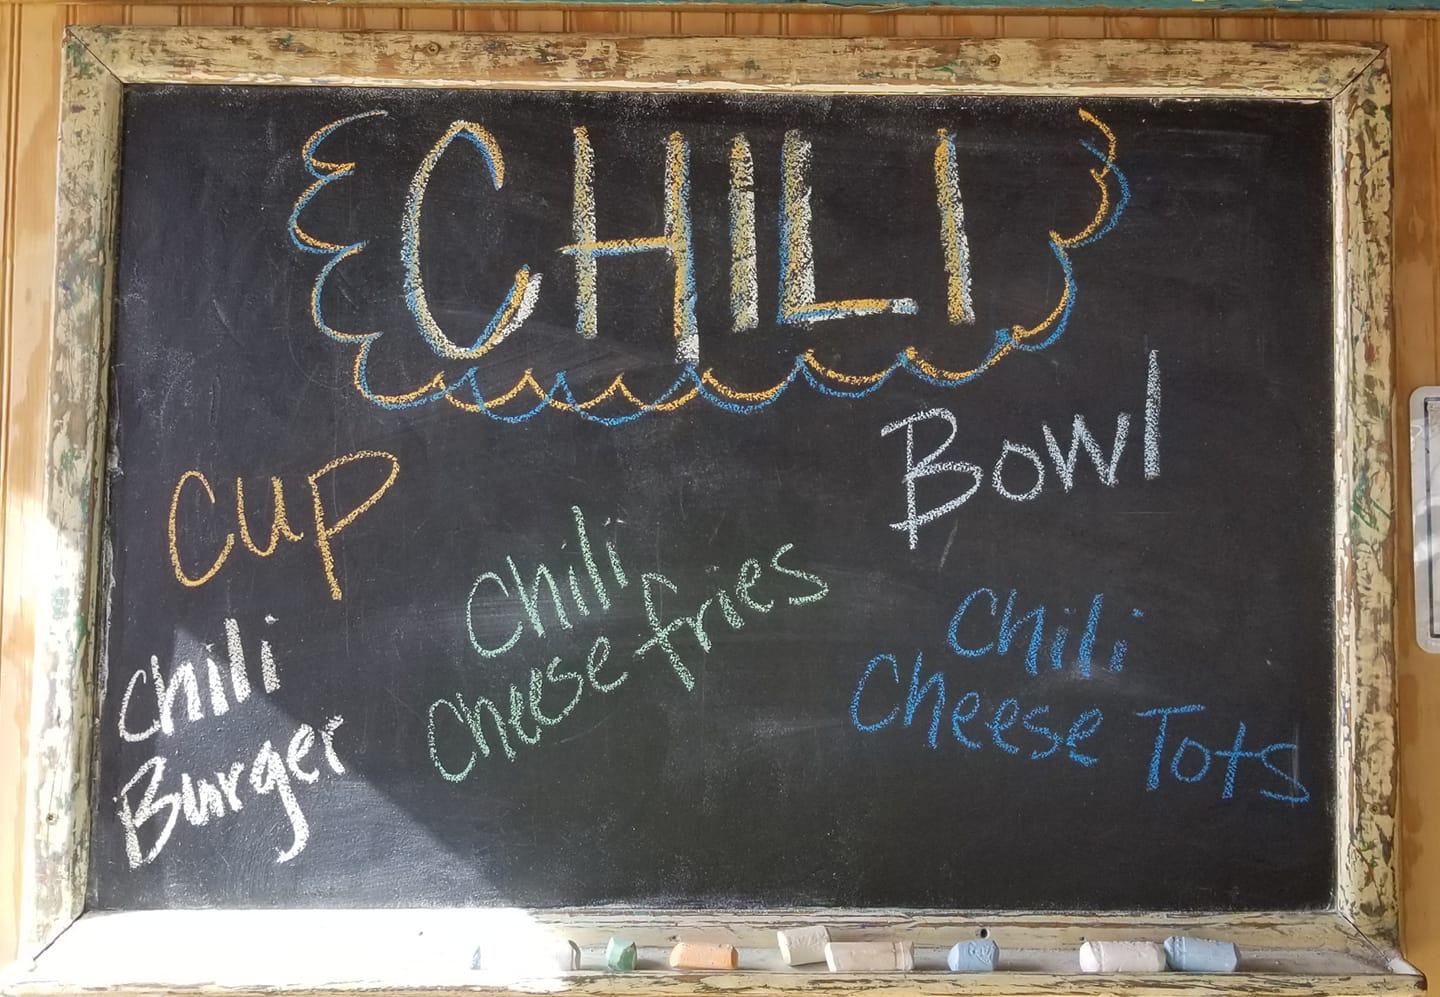 CHILI
Cup
Bowl
Chili
Cheese fries
Chili
Burger
Chili
Cheese Tots